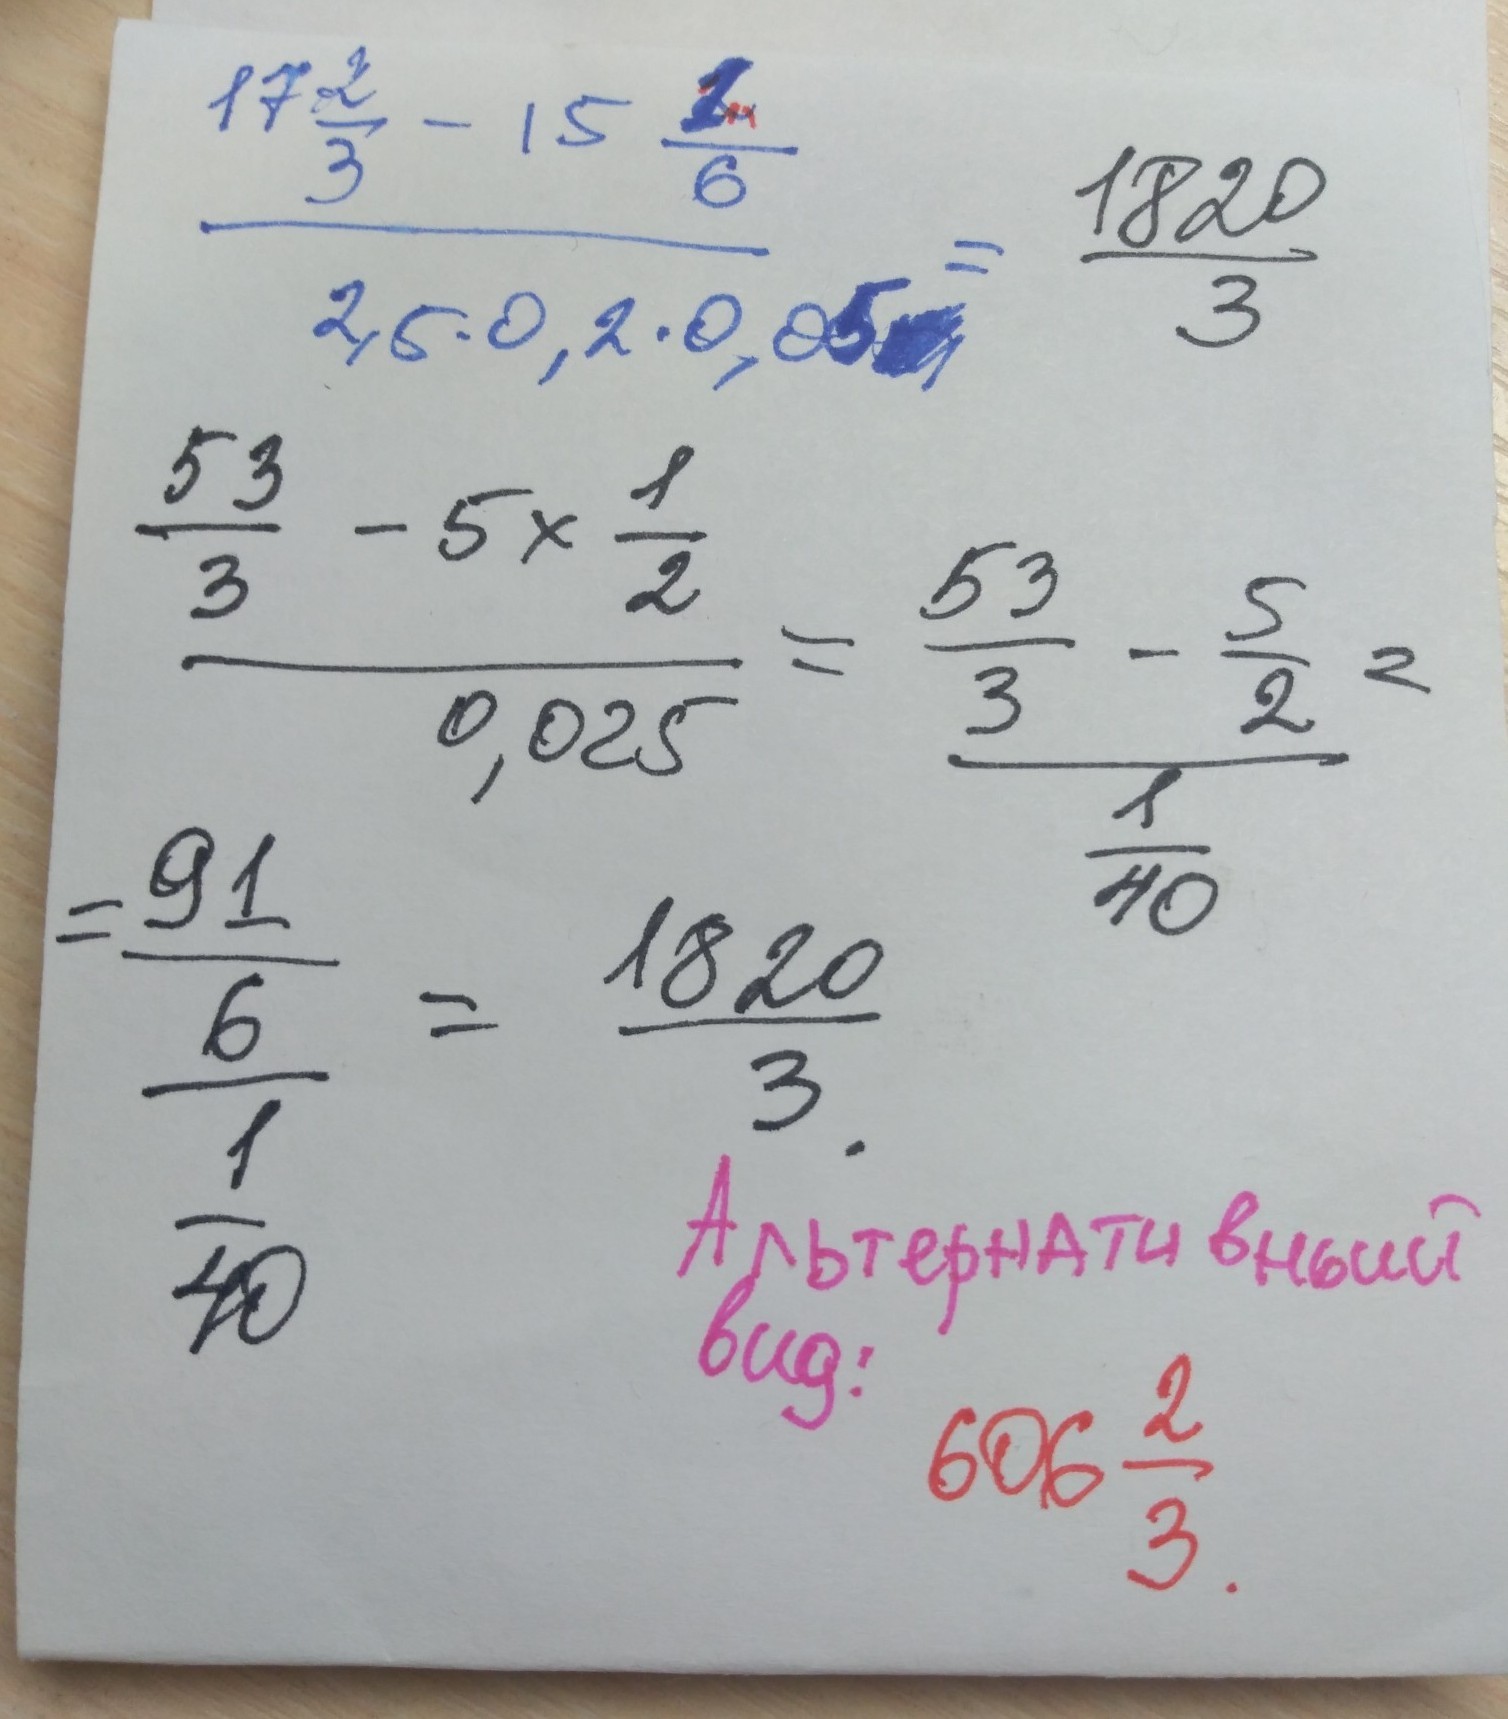 17 2/3 - 15 1/6
2,5·0,2·0,05 = 1820/3
53/3 - 5 × 1/2
0,025 = 53/3 - 5/2 =
1/40
= 91/6 = 1820/3.
1/40
Альтернативный
вид:
606 2/3.